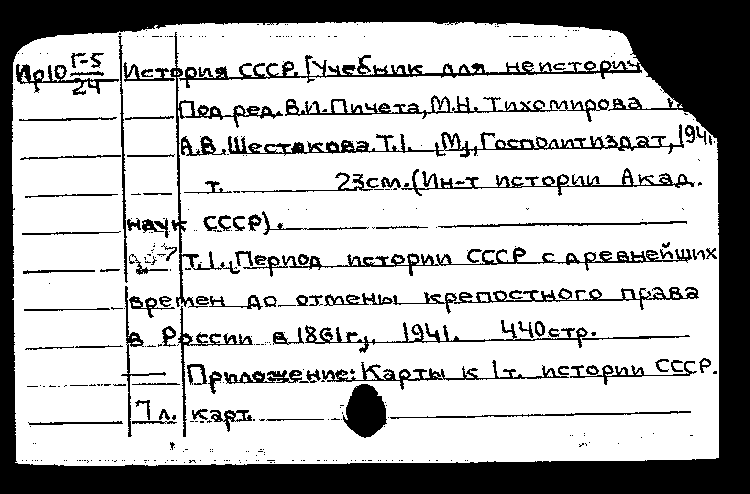 Ир10 Г-5/24 История СССР. [Учебник для неисторич
Под ред. В.И. Пичета, М.Н. Тихомирова и
А.В. Шестакова. Т.1. [М], Госполитиздат, 1941.
т. 23см. (Ин-т истории Акад.
наук СССР).
Т.1. [Период истории СССР с древнейших
времен до отмены крепостного права
в России в 1861г.]. 1941. 440стр.
— Приложение: Карты к 1т. истории СССР.
7 л. карт.